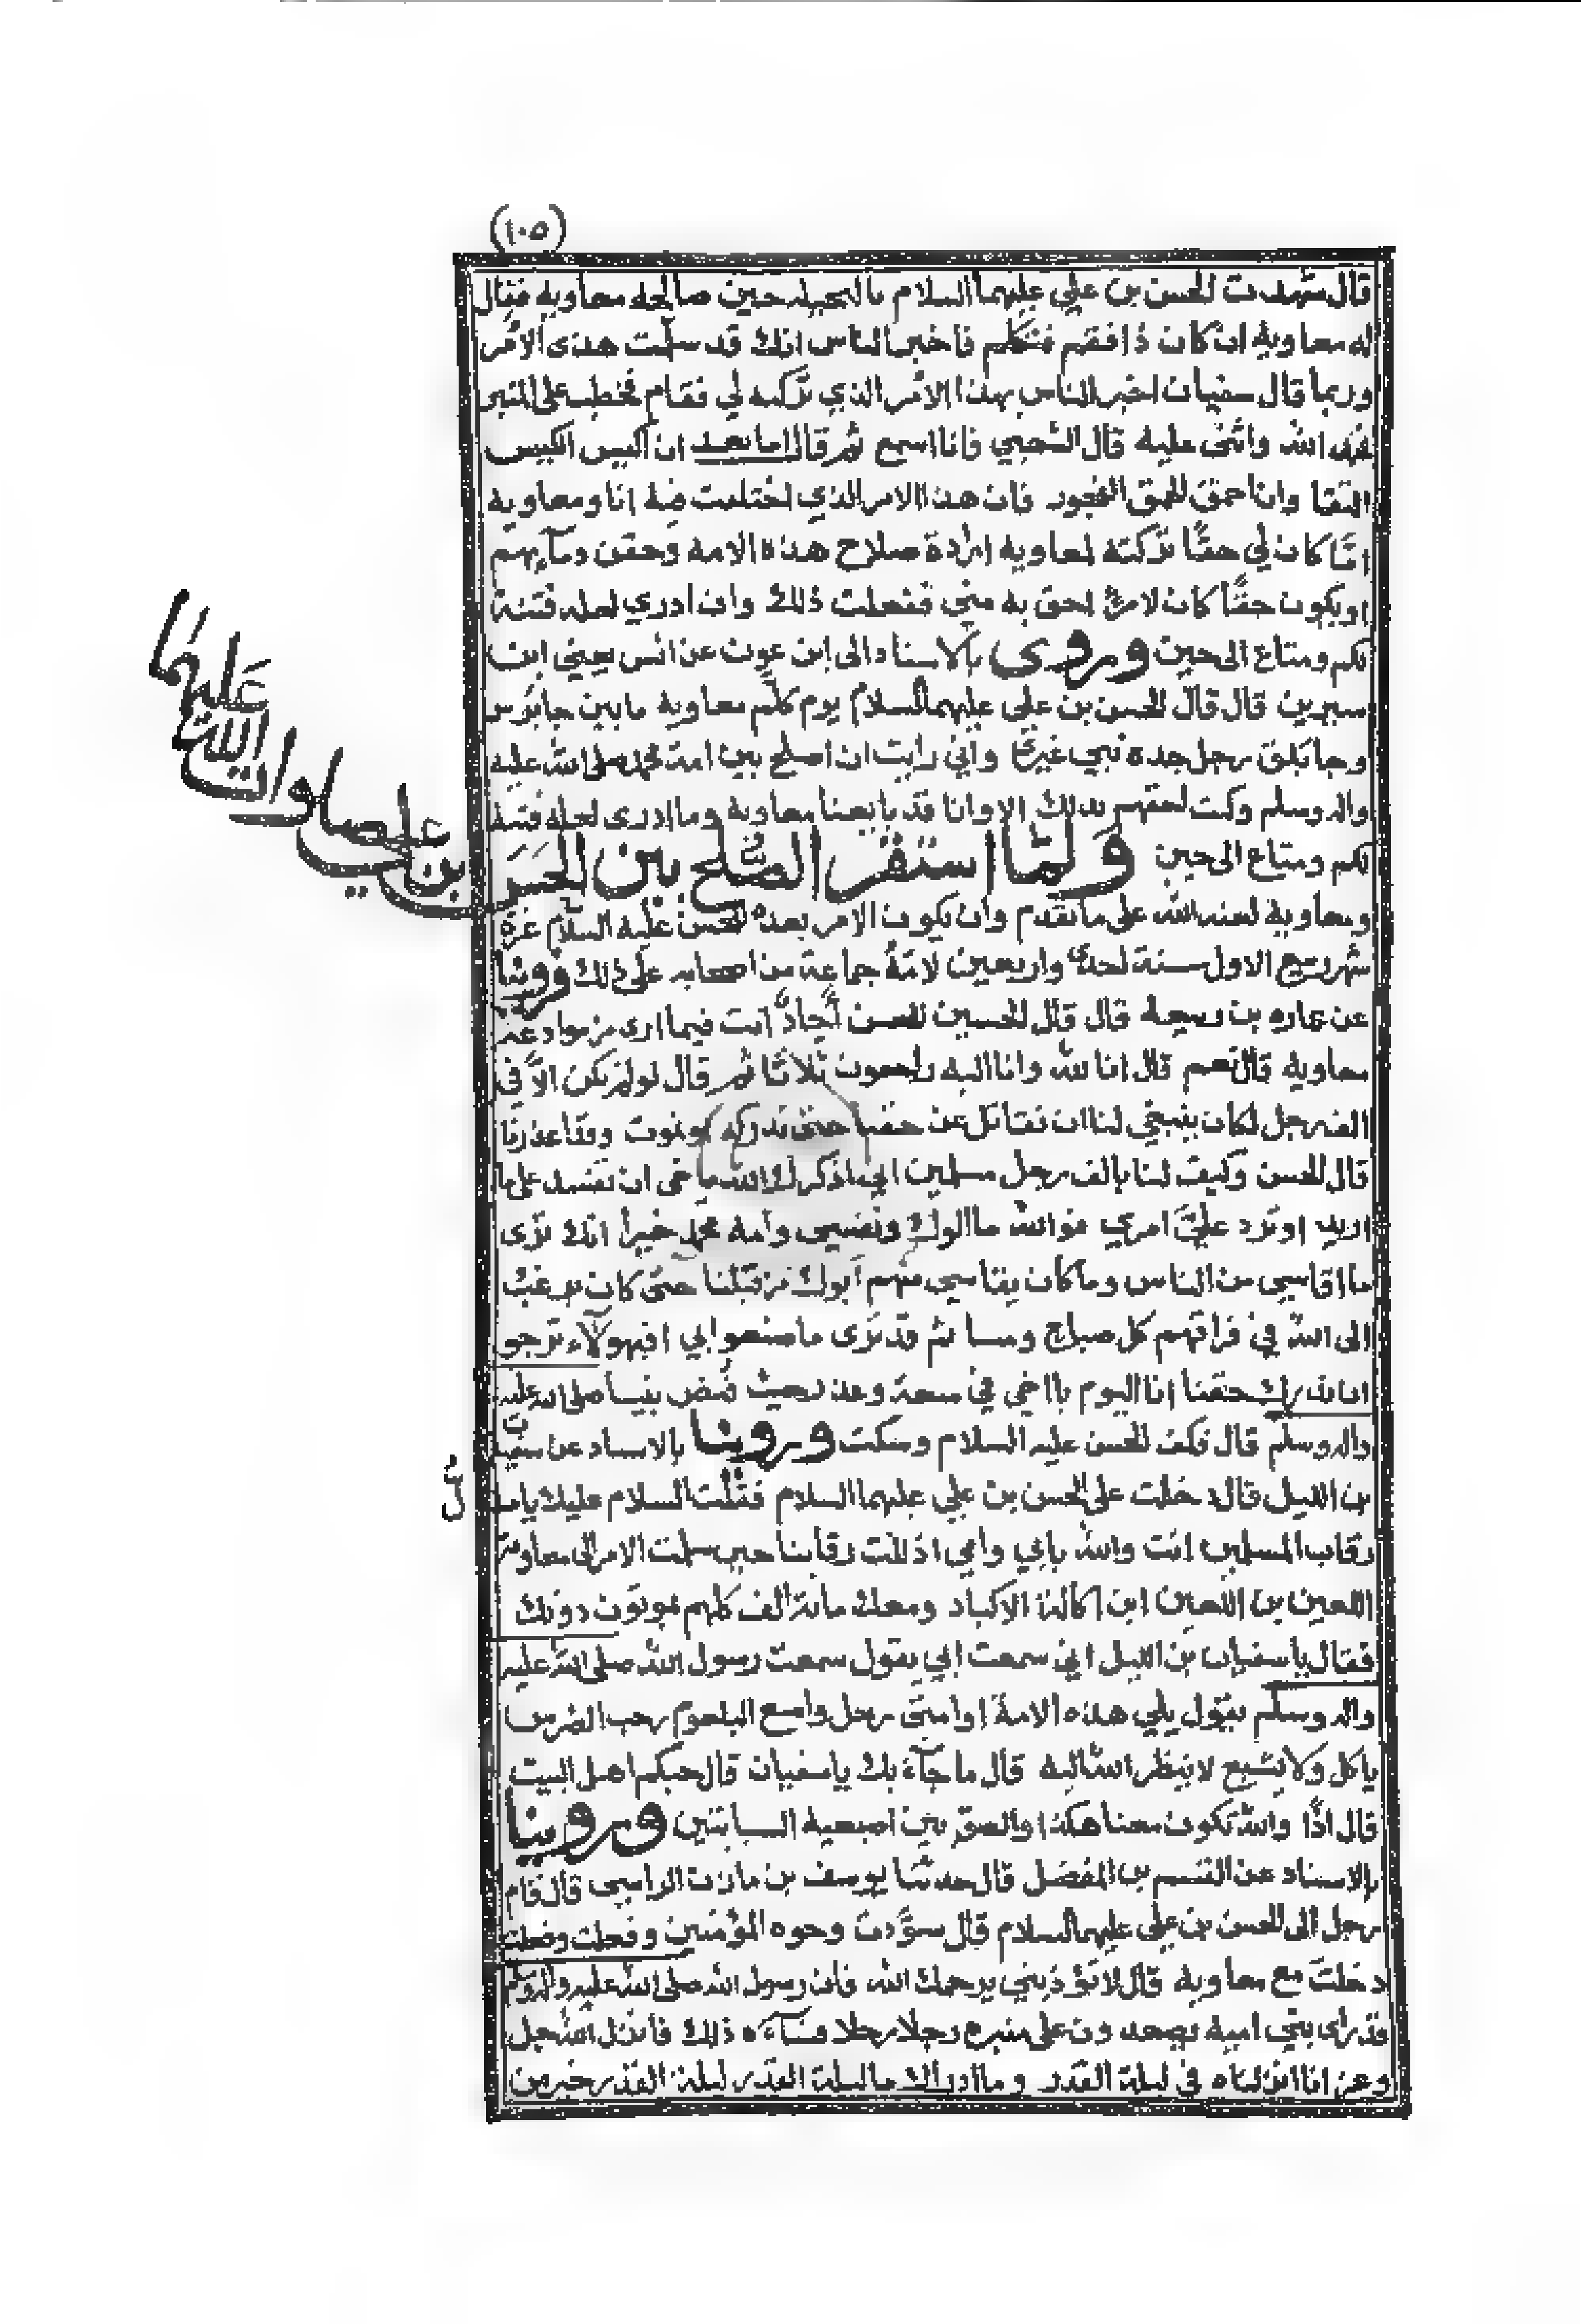 (١٠٥)
قال شهدت الحسن بن علي عليهما السلام بالنخيله حين صالحه معاويه فقال
له معاوية ان كان ذا فقم فتكلم فاخبر الناس انك قد سلمت هذى الامر
وربما قال سفيان اخبر الناس بهذا الامر الذي تركته لي فقام فخطب على المنبر
فحمد الله واثنى عليه قال الشعبي فانا اسمع ثم قال اما بعد ان اكيس الكيس
التقا وان احمق الحمق الفجور فان هذا الامر الذي اختلفت فيه انا ومعاويه
امّا كان لي حقّا تركته لمعاويه ارادة صلاح هذه الامه وحقن دمآءهم
اويكون حقًّا كان لامرئ احق به مني ففعلت ذلك وان ادري لعله فتنة
لكم ومتاع الى حين وروى بالاسناد الى ابن عون عن انس يعني ابن
سيرين قال قال الحسن بن علي عليهما السلام يوم كلّم معاويه ما بين جابرس
وجابلق رجل جده نبي غيرى واني رايت ان اصلح بين امة محمد صلى الله عليه
واله وسلم وكنت احقهم بذلك الا وانا قد بايعنا معاوية وما ادرى لعله فتنة
لكم ومتاع الى حين ولمّا استقر الصّلح بين الحسن
بن علي صلوات الله عليهما
ومعاوية لعنه الله على ما تقدم وان يكون الامر بعده للحسن عليه السلام غرة
شهر ربيع الاول سنة احدى واربعين لامَهُ جماعة من اصحابه على ذلك فروينا
عن عماره بن ربيعة قال قال الحسين للحسن أجادّ انت فيما ارى من موادعة
معاويه قال نعم قال انا لله وانا اليه راجعون ثلاثا ثم قال لو لم نكن الّا في
الف رجل لكان ينبغي لنا ان نقاتل عن حقنا حتى ندركه او نموت وقد اعذرنا
قال الحسن وكيف لنا بالف رجل مسلمين اني اذكرك الله يا اخي ان تفسد على ما
اريد او ترد عليّ امري فوالله ما الوك ونفسي وامة محمد خيرا انك ترى
ما اقاسي من الناس وما كان يقاسي منهم ابوك من قبلنا حتى كان يرغب
الى الله في فراقهم كل صباح ومسا ثم قد ترى ما صنعوا بي افبهولآء ترجو
ان ندرك حقنا انا اليوم يا اخي في سعة وعذر حيث قبض نبينا صلى الله عليه
واله وسلم قال فكف الحسن عليه السلام وسكت وروينا بالاسناد عن سفين
بن الليل قال دخلت على الحسن بن علي عليهما السلام فقلت السلام عليك يا مذلّ
رقاب المسلمين انت والله بابي وامي اذللت رقابنا حين سلمت الامر الى معاويه
اللعين بن اللعين ابن اكالة الاكباد ومعك مائة الف كلهم يموتون دونك
فقال يا سفيان بن الليل اني سمعت ابي يقول سمعت رسول الله صلى الله عليه
واله وسلم يقول يلي هذه الامة او امتي رجل واسع البلعوم رحب الضرس
ياكل ولا يشبع لا ينظر الله اليه قال ما جآء بك يا سفيان قال حبكم اهل البيت
قال اذًا والله تكون معنا هكذا والصق بين اصبعيه السبابتين وروينا
بالاسناد عن القسم بن الفضل قال حدثنا يوسف بن مازن الراسبي قال قام
رجل الى الحسن بن علي عليهما السلام قال سوّدت وجوه المؤمنين وفعلت وفعلت
دخلت مع معاوية قال لا تؤذيني يرحمك الله فان رسول الله صلى الله عليه واله وسلم
قد راى بني اميه يصعدون على منبره رجلا رجلا فسآءه ذلك فانزل الله جل
وعز انا انزلناه في ليلة القدر وما ادراك ما ليلة القدر ليلة القدر خير من